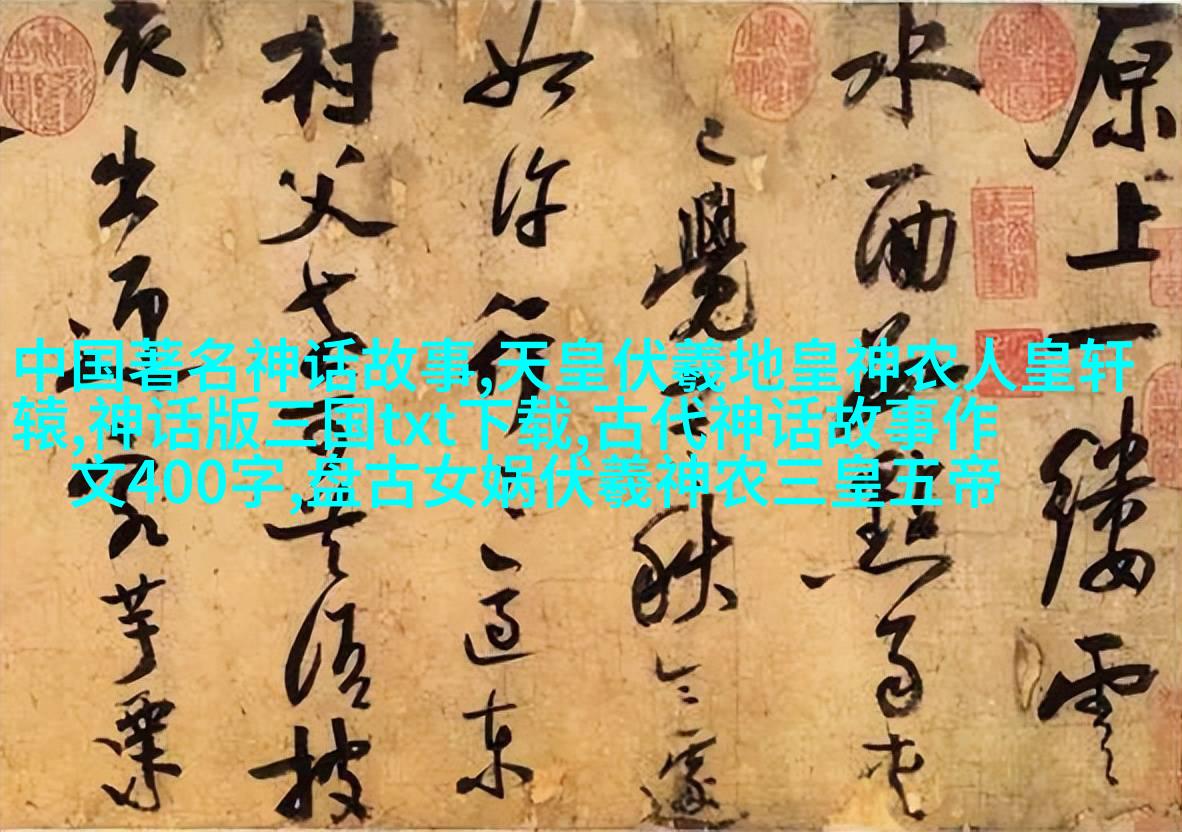 中国著名神话故事,天皇伏羲地皇神农人皇轩
辕,神话版三国txt下载,古代神话故事作
文400字,盘古女娲伏羲神农三皇五帝
原上一缕雲
水面點
已覺秋令遽
如許行適東
村父老共語披
衣出迎客芋栗